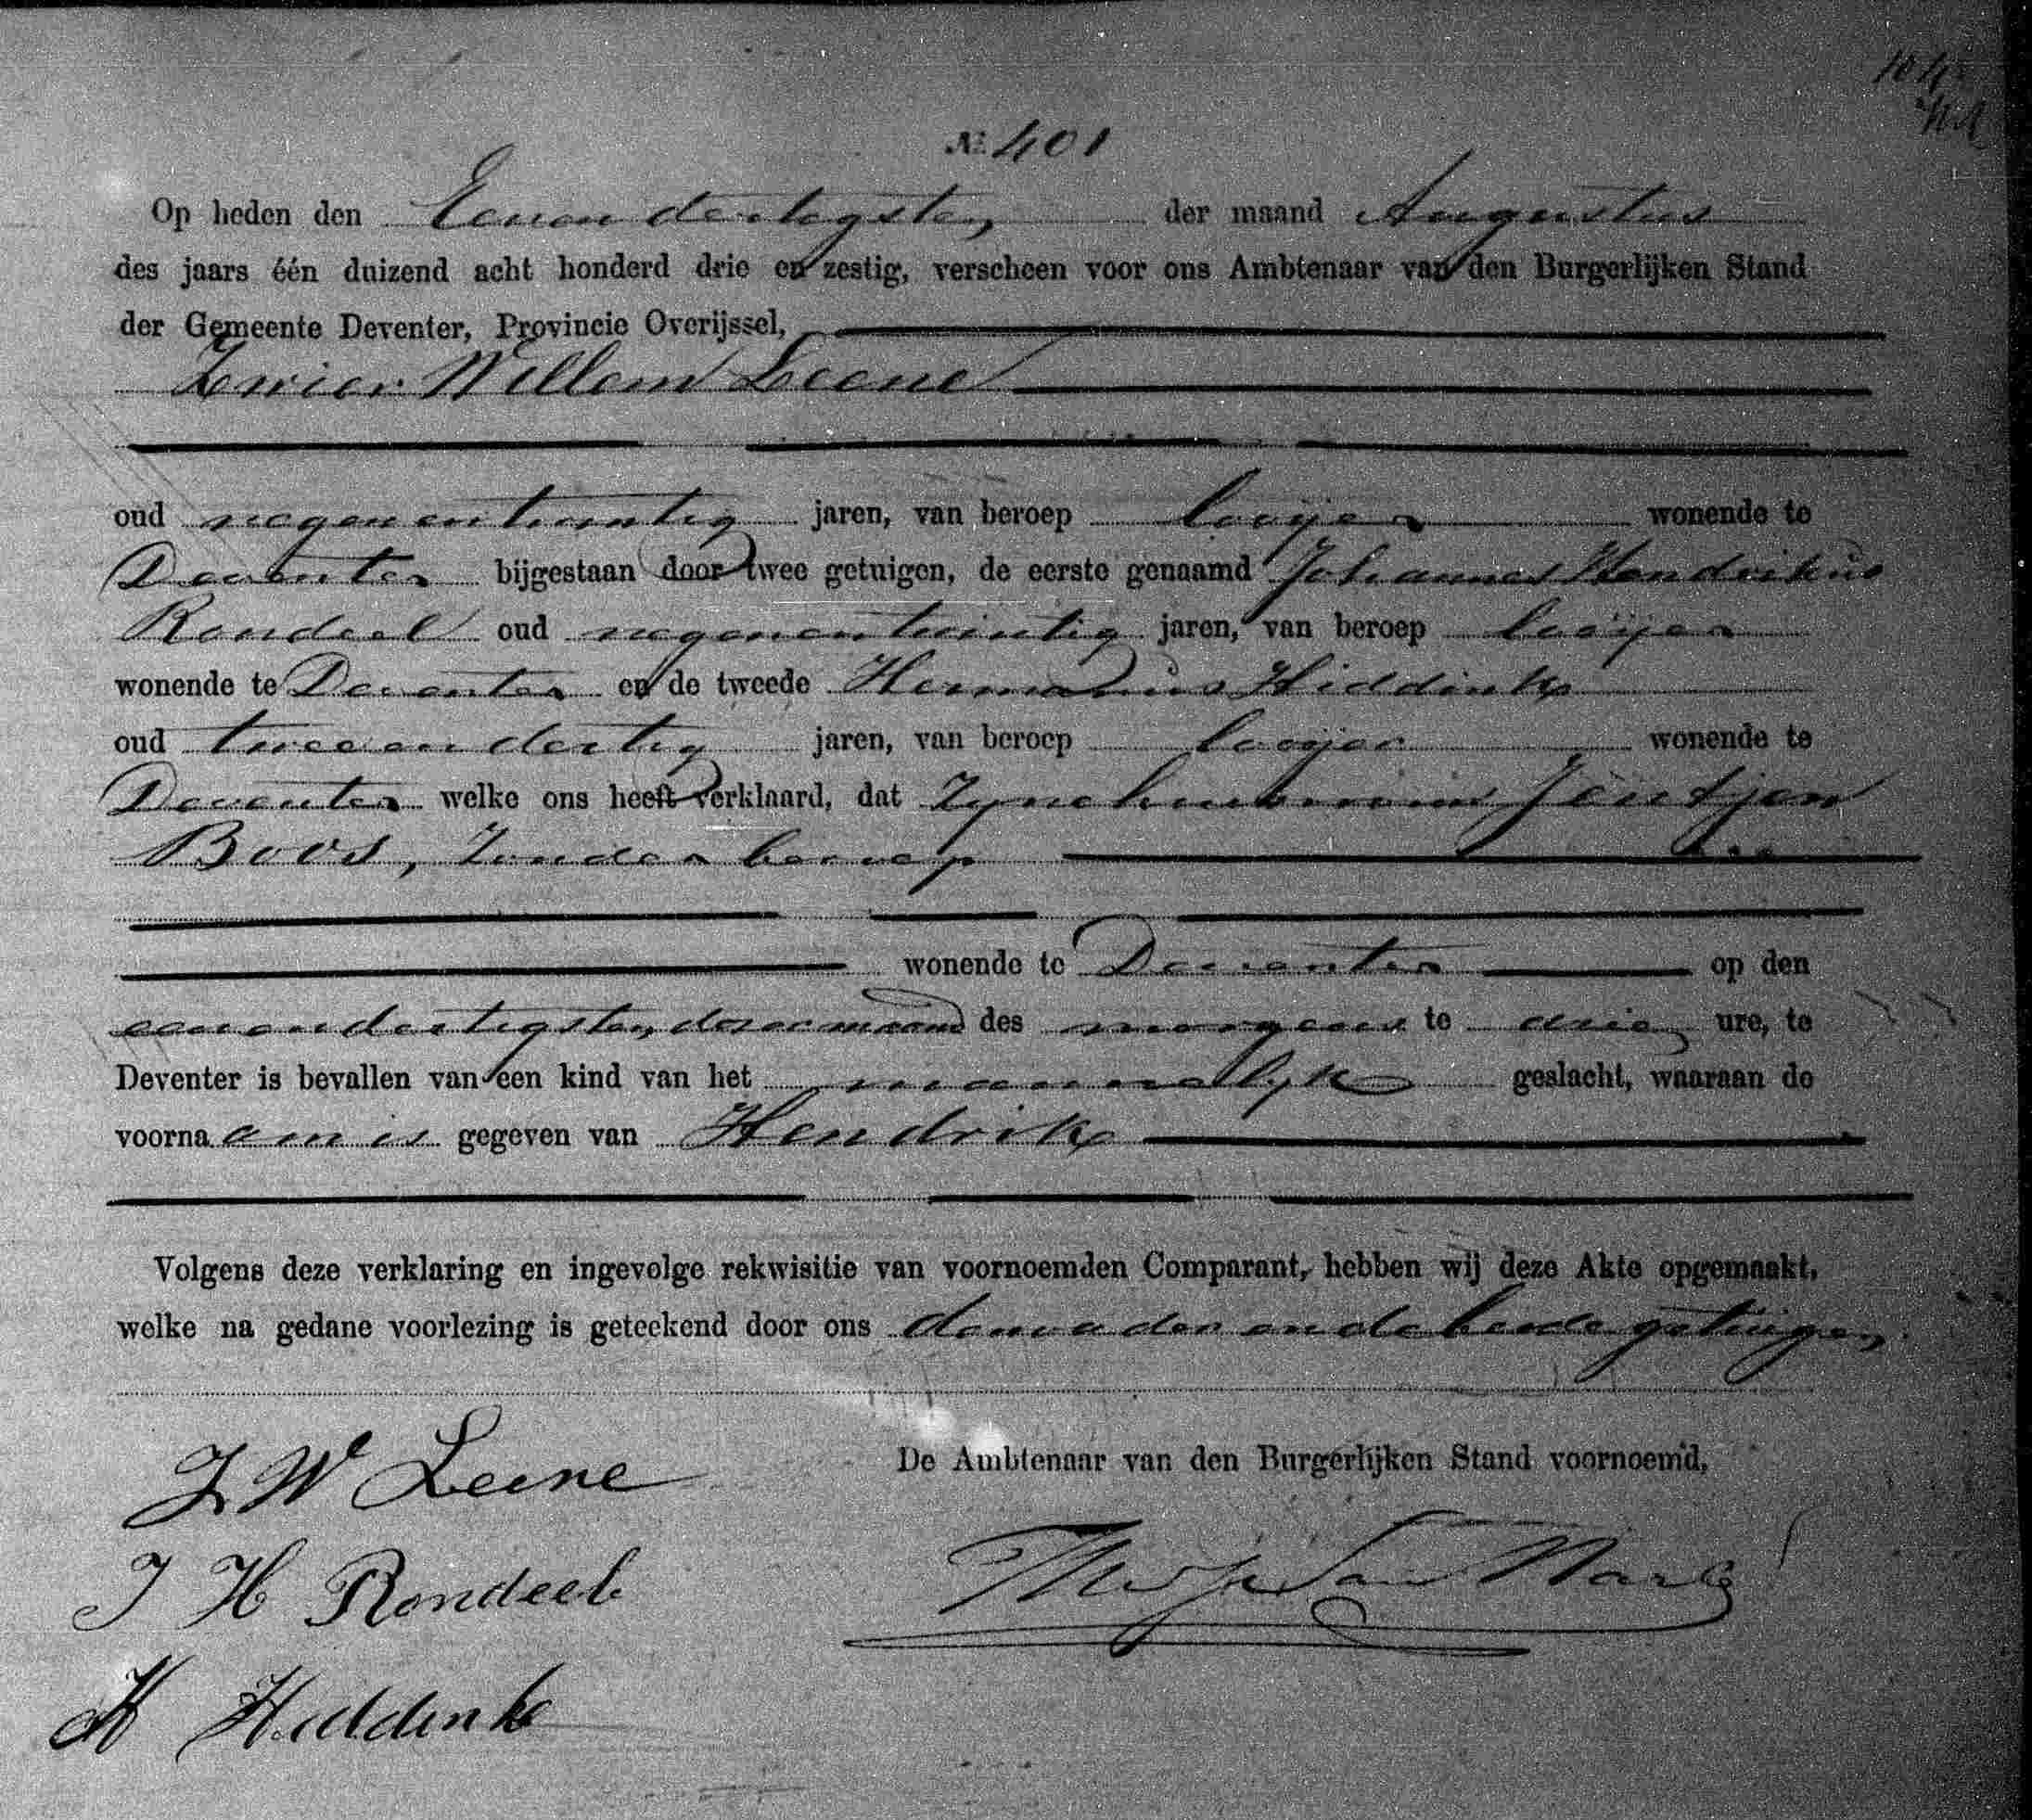 104
№ 401
Op heden den Eenendertigsten, der maand Augustus
des jaars één duizend acht honderd drie en zestig, verscheen voor ons Ambtenaar van den Burgerlijken Stand
der Gemeente Deventer, Provincie Overijssel,
Zwier Willem Leene
oud negenentwintig jaren, van beroep looijer wonende te
Deventer bijgestaan door twee getuigen, de eerste genaamd Johannes Hendrikus
Rondeel oud negenentwintig jaren, van beroep looijer
wonende te Deventer en de tweede Hermanus Hiddink
oud tweeendertig jaren, van beroep looijer wonende te
Deventer welke ons heeft verklaard, dat Zyne huisvrouw Jentjen
Boos, Zonder beroep
wonende te Deventer op den
eenendertigsten, dezer maand des morgens te drie, ure, te
Deventer is bevallen van een kind van het mannelyk geslacht, waaraan de
voornaam is gegeven van Hendrik
Volgens deze verklaring en ingevolge rekwisitie van voornoemden Comparant, hebben wij deze Akte opgemaakt,
welke na gedane voorlezing is geteekend door ons den vader en de beide getuigen,
Z W Leene
De Ambtenaar van den Burgerlijken Stand voornoemd,
J H Rondeel
H Hiddink